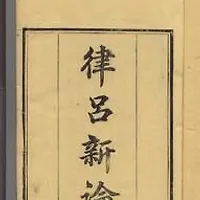 律呂新論